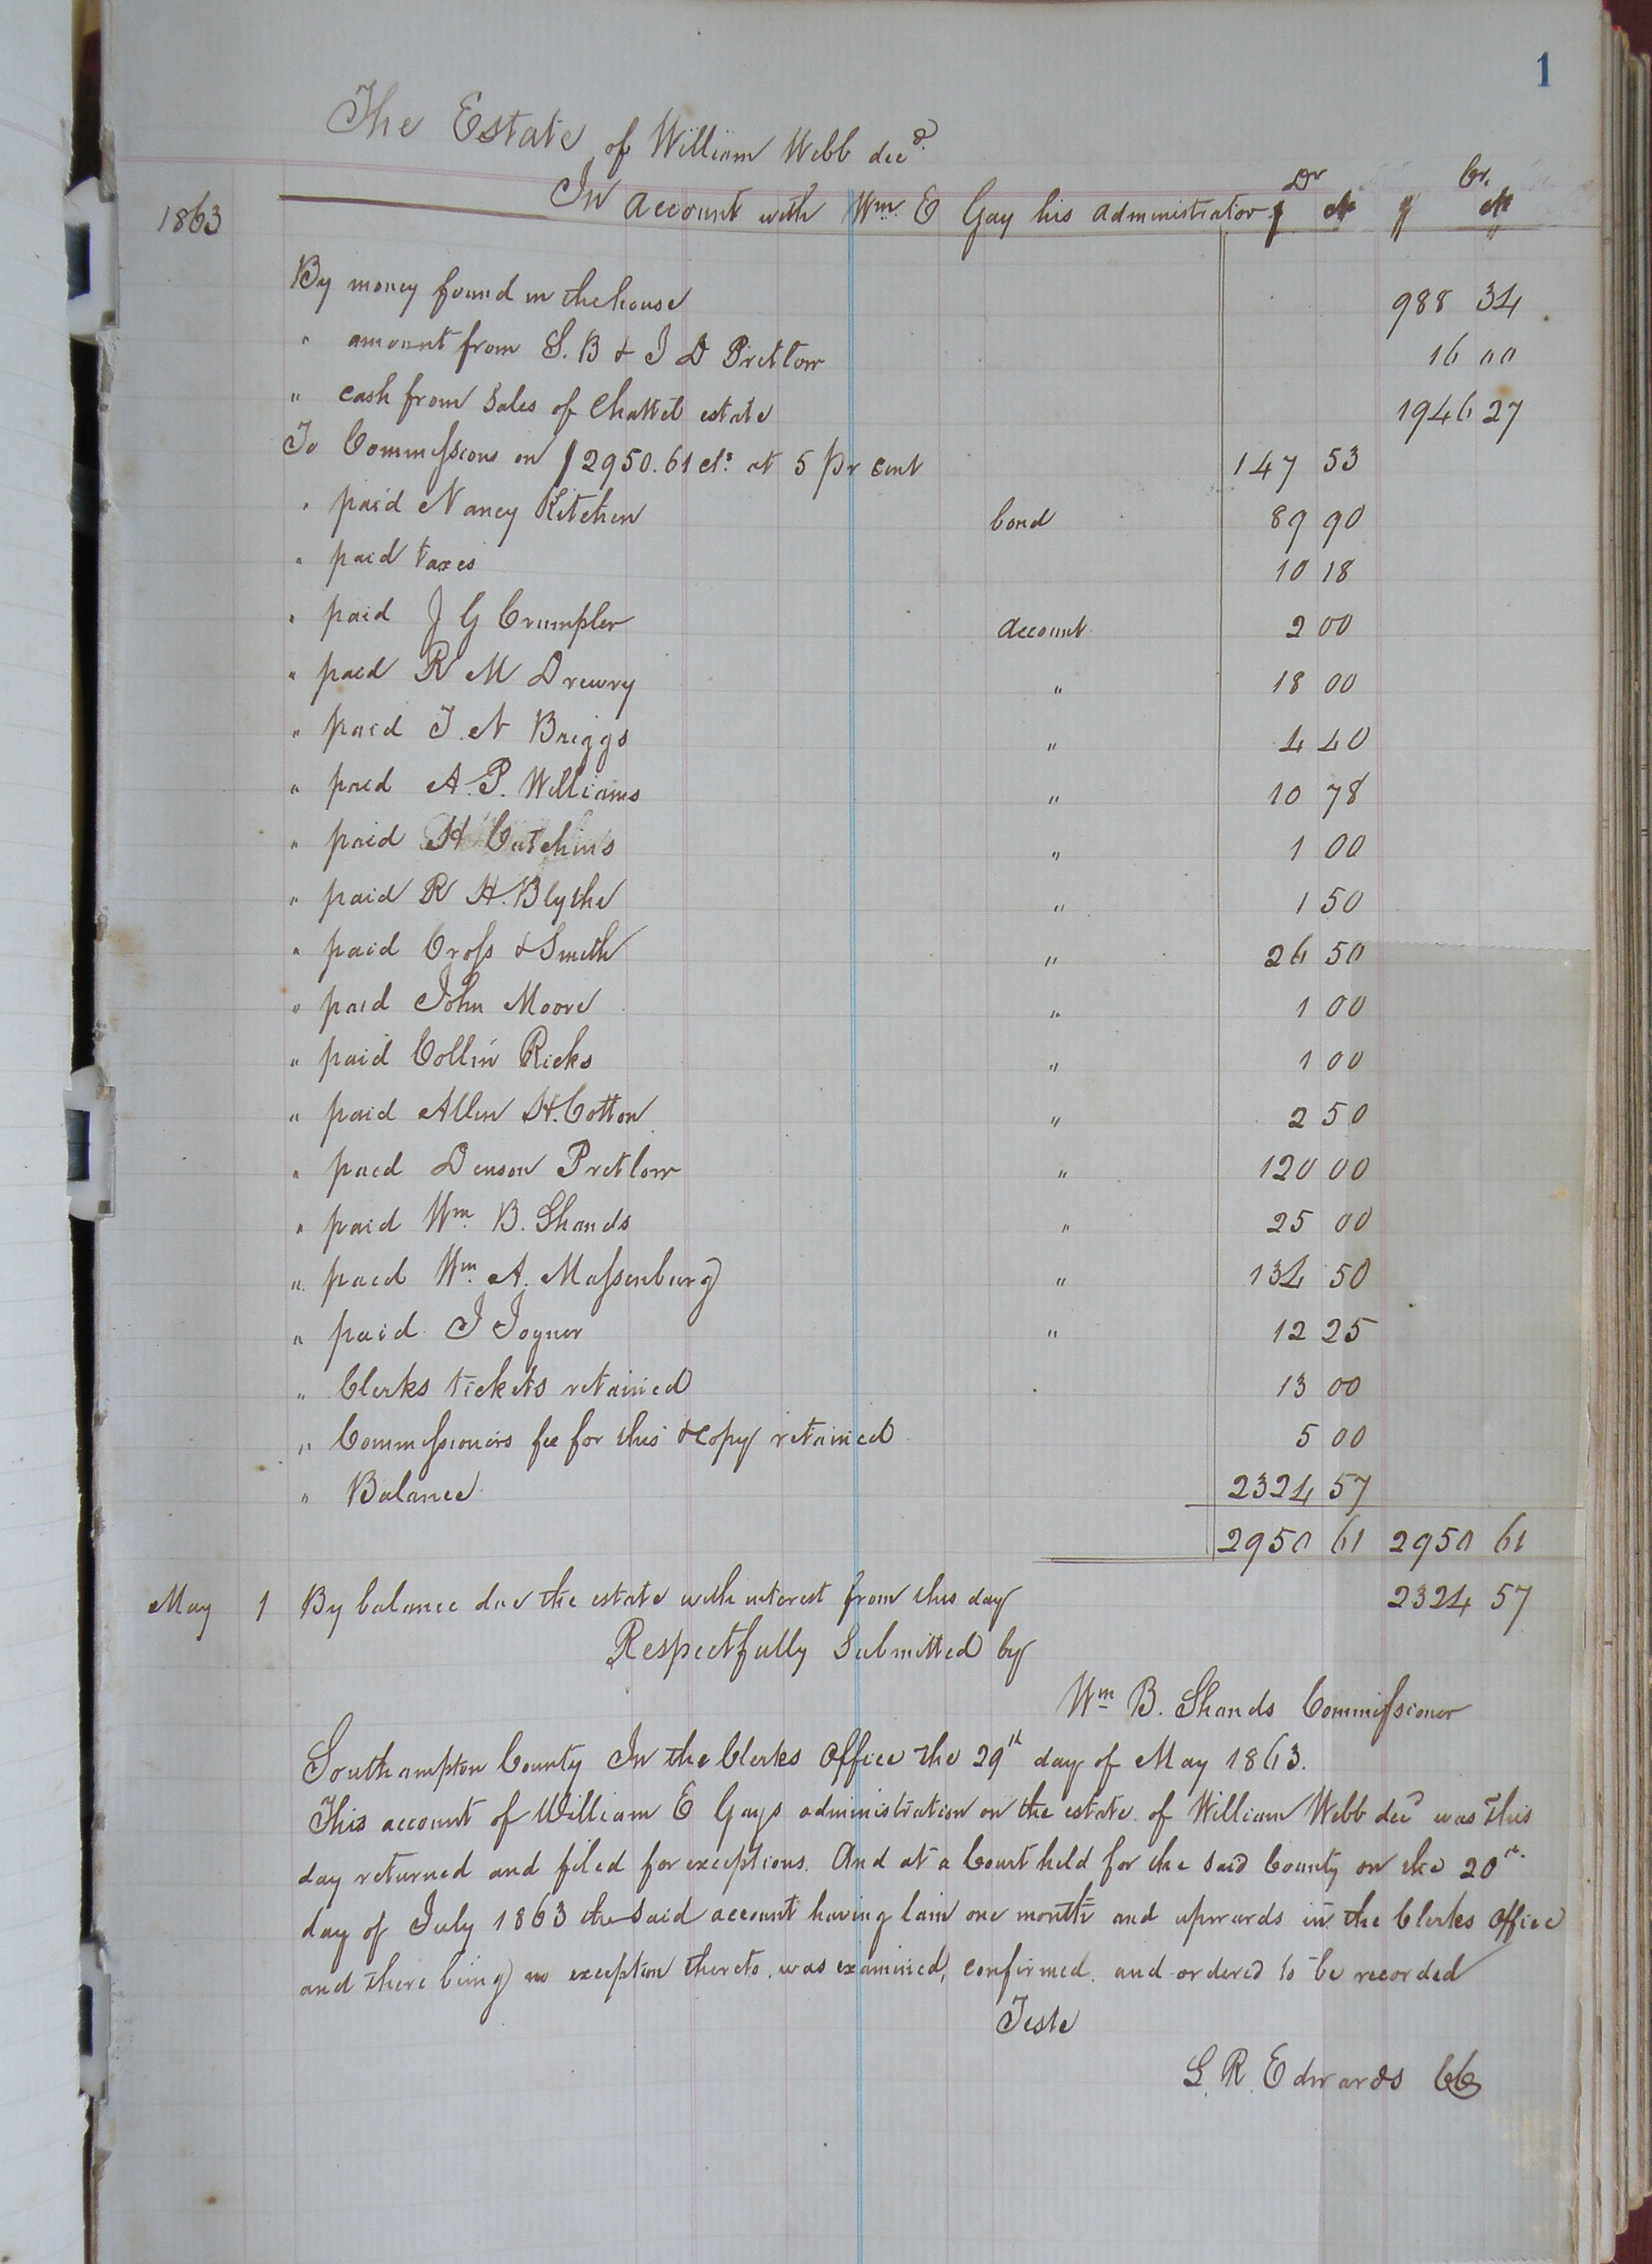 1
The Estate of William Webb decd.
Dr Cr.
1863 In account with Wm. E Gay his administrator $ cts $ cts
By money found in the house 988 34
" amount from S. B & J D Pretlow 16 00
" cash from Sales of Chattel estate 1946 27
To Commissions on $2950.61 cts. at 5 pr cent 147 53
" paid Nancy Kitchen bond 89 90
" paid taxes 10 18
" paid J G Crumpler account 2 00
" paid R M Drewry " 18 00
" paid J. N Briggs " 4 40
" paid A. P. Williams " 10 78
" paid H Cutchins " 1 00
" paid R H. Blythe " 1 50
" paid Cross & Smith " 26 50
" paid John Moore " 1 00
" paid Collin Ricks " 1 00
" paid Allen H. Cotton " 2 50
" paid Denson Pretlow " 120 00
" paid Wm. B. Shands " 25 00
" paid Wm. A. Massenburg " 134 50
" paid J Joyner " 12 25
" Clerks tickets retained 13 00
" Commissioners fee for this & copy retained 5 00
" Balance 2324 57
2950 61 2950 61
May 1 By balance due the estate with interest from this day 2324 57
Respectfully Submitted by
Wm B. Shands Commissioner
Southampton County In the Clerks Office the 29th day of May 1863.
This account of William E Gays administration on the estate of William Webb decd was this
day returned and filed for exceptions. And at a Court held for the said County on the 20th.
day of July 1863 the said account having lain one month and upwards in the Clerks office
and there being no exception thereto was examined, confirmed and ordered to be recorded
Teste
L. R. Edwards CC